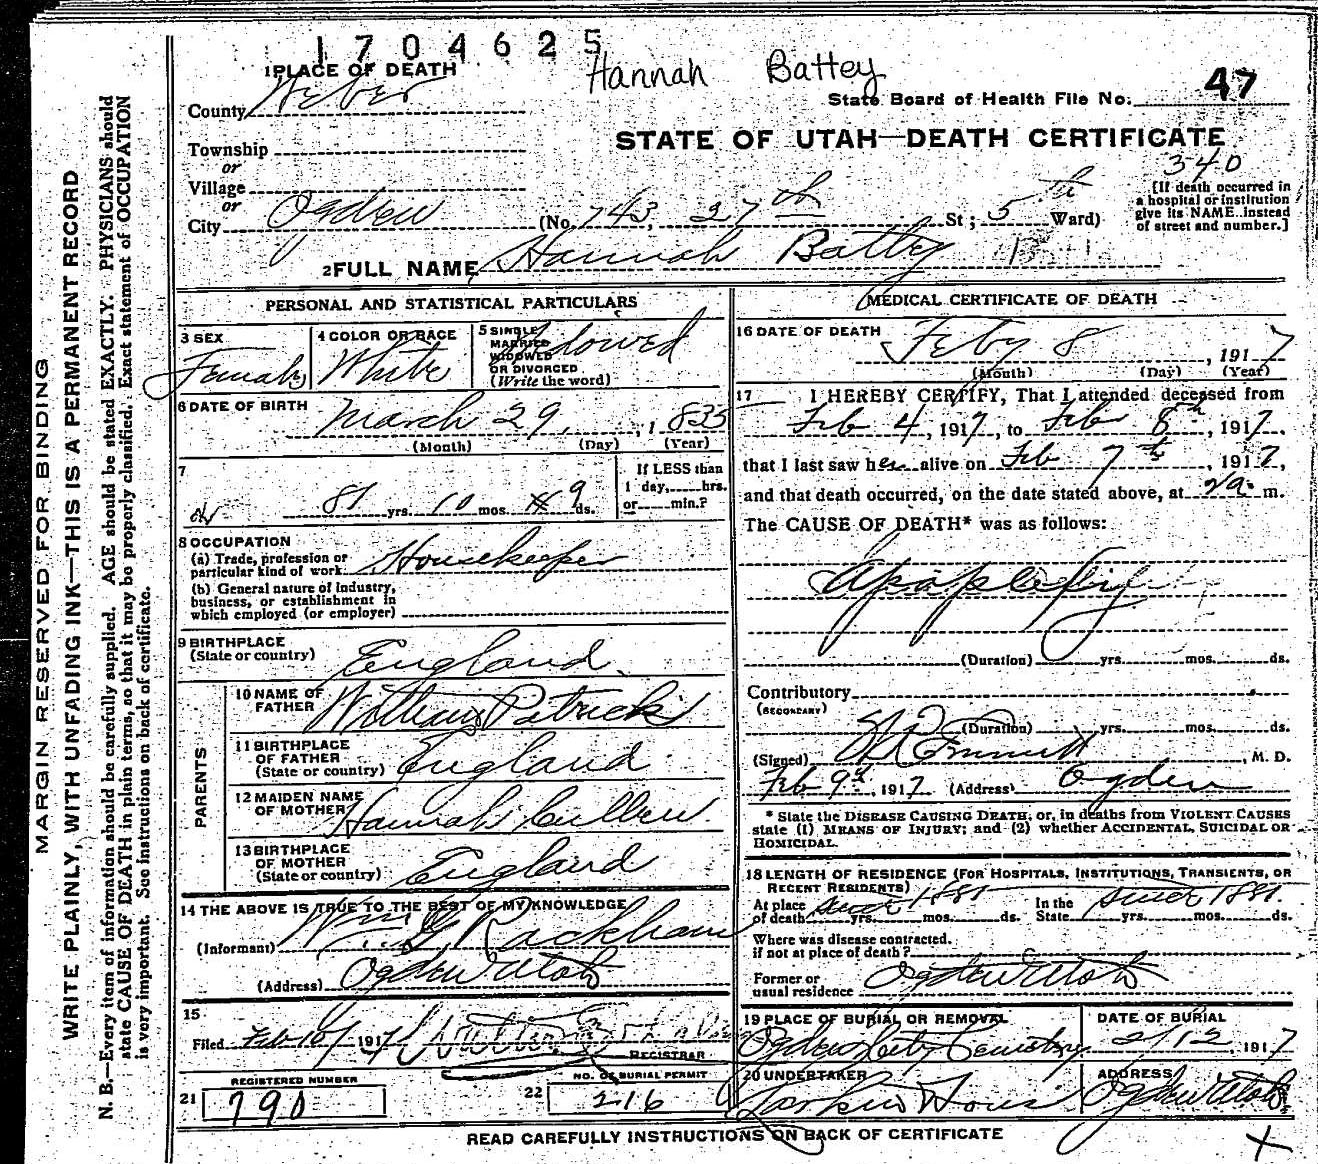 1704625
Hannah Battey
1 PLACE OF DEATH
County Weber
State Board of Health File No. 47
Township
or
STATE OF UTAH—DEATH CERTIFICATE
340
Village
or
City Ogden (No. 743, 27th St; 5th Ward)
[If death occurred in
a hospital or institution
give its NAME instead
of street and number.]
2 FULL NAME Hannah Battey
PERSONAL AND STATISTICAL PARTICULARS
3 SEX
Female
4 COLOR OR RACE
White
5 SINGLE
MARRIED
WIDOWED
OR DIVORCED
(Write the word)
Widowed
6 DATE OF BIRTH
March 29, 1835
(Month) (Day) (Year)
7
81 yrs. 10 mos. 9 ds.
If LESS than
1 day, hrs.
or min.?
8 OCCUPATION
(a) Trade, profession or
particular kind of work Housekeeper
(b) General nature of industry,
business, or establishment in
which employed (or employer)
9 BIRTHPLACE
(State or country) England
PARENTS
10 NAME OF
FATHER William Patrick
11 BIRTHPLACE
OF FATHER
(State or country) England
12 MAIDEN NAME
OF MOTHER Hannah Cullen
13 BIRTHPLACE
OF MOTHER
(State or country) England
14 THE ABOVE IS TRUE TO THE BEST OF MY KNOWLEDGE
(Informant) Wm. G. Rackham
(Address) Ogden Utah
15
Filed Feb 10, 1917
REGISTRAR
REGISTERED NUMBER
21 790
NO. OF BURIAL PERMIT
22 216
MEDICAL CERTIFICATE OF DEATH
16 DATE OF DEATH
Feby 8, 1917
(Month) (Day) (Year)
17 I HEREBY CERTIFY, That I attended deceased from
Feb 4, 1917, to Feb 8th, 1917,
that I last saw her alive on Feb 7th, 1917,
and that death occurred, on the date stated above, at m.
The CAUSE OF DEATH* was as follows:
Apoplexy
(Duration) yrs. mos. ds.
Contributory
(SECONDARY)
(Duration) yrs. mos. ds.
(Signed) Emmett, M. D.
Feb 9th, 1917 (Address) Ogden
* State the DISEASE CAUSING DEATH, or, in deaths from VIOLENT CAUSES
state (1) MEANS OF INJURY; and (2) whether ACCIDENTAL, SUICIDAL OR
HOMICIDAL.
18 LENGTH OF RESIDENCE (FOR HOSPITALS, INSTITUTIONS, TRANSIENTS, OR
RECENT RESIDENTS)
At place
of death since 1881 yrs. mos. ds. In the
State since 1881. yrs. mos. ds.
Where was disease contracted,
if not at place of death?
Former or
usual residence Ogden Utah
19 PLACE OF BURIAL OR REMOVAL
Ogden City Cemetery
DATE OF BURIAL
2/12, 1917
20 UNDERTAKER
Larkin Sons
ADDRESS
Ogden Utah
READ CAREFULLY INSTRUCTIONS ON BACK OF CERTIFICATE
MARGIN RESERVED FOR BINDING
WRITE PLAINLY, WITH UNFADING INK—THIS IS A PERMANENT RECORD
N. B.—Every item of information should be carefully supplied. AGE should be stated EXACTLY. PHYSICIANS should
state CAUSE OF DEATH in plain terms, so that it may be properly classified. Exact statement of OCCUPATION
is very important. See instructions on back of certificate.